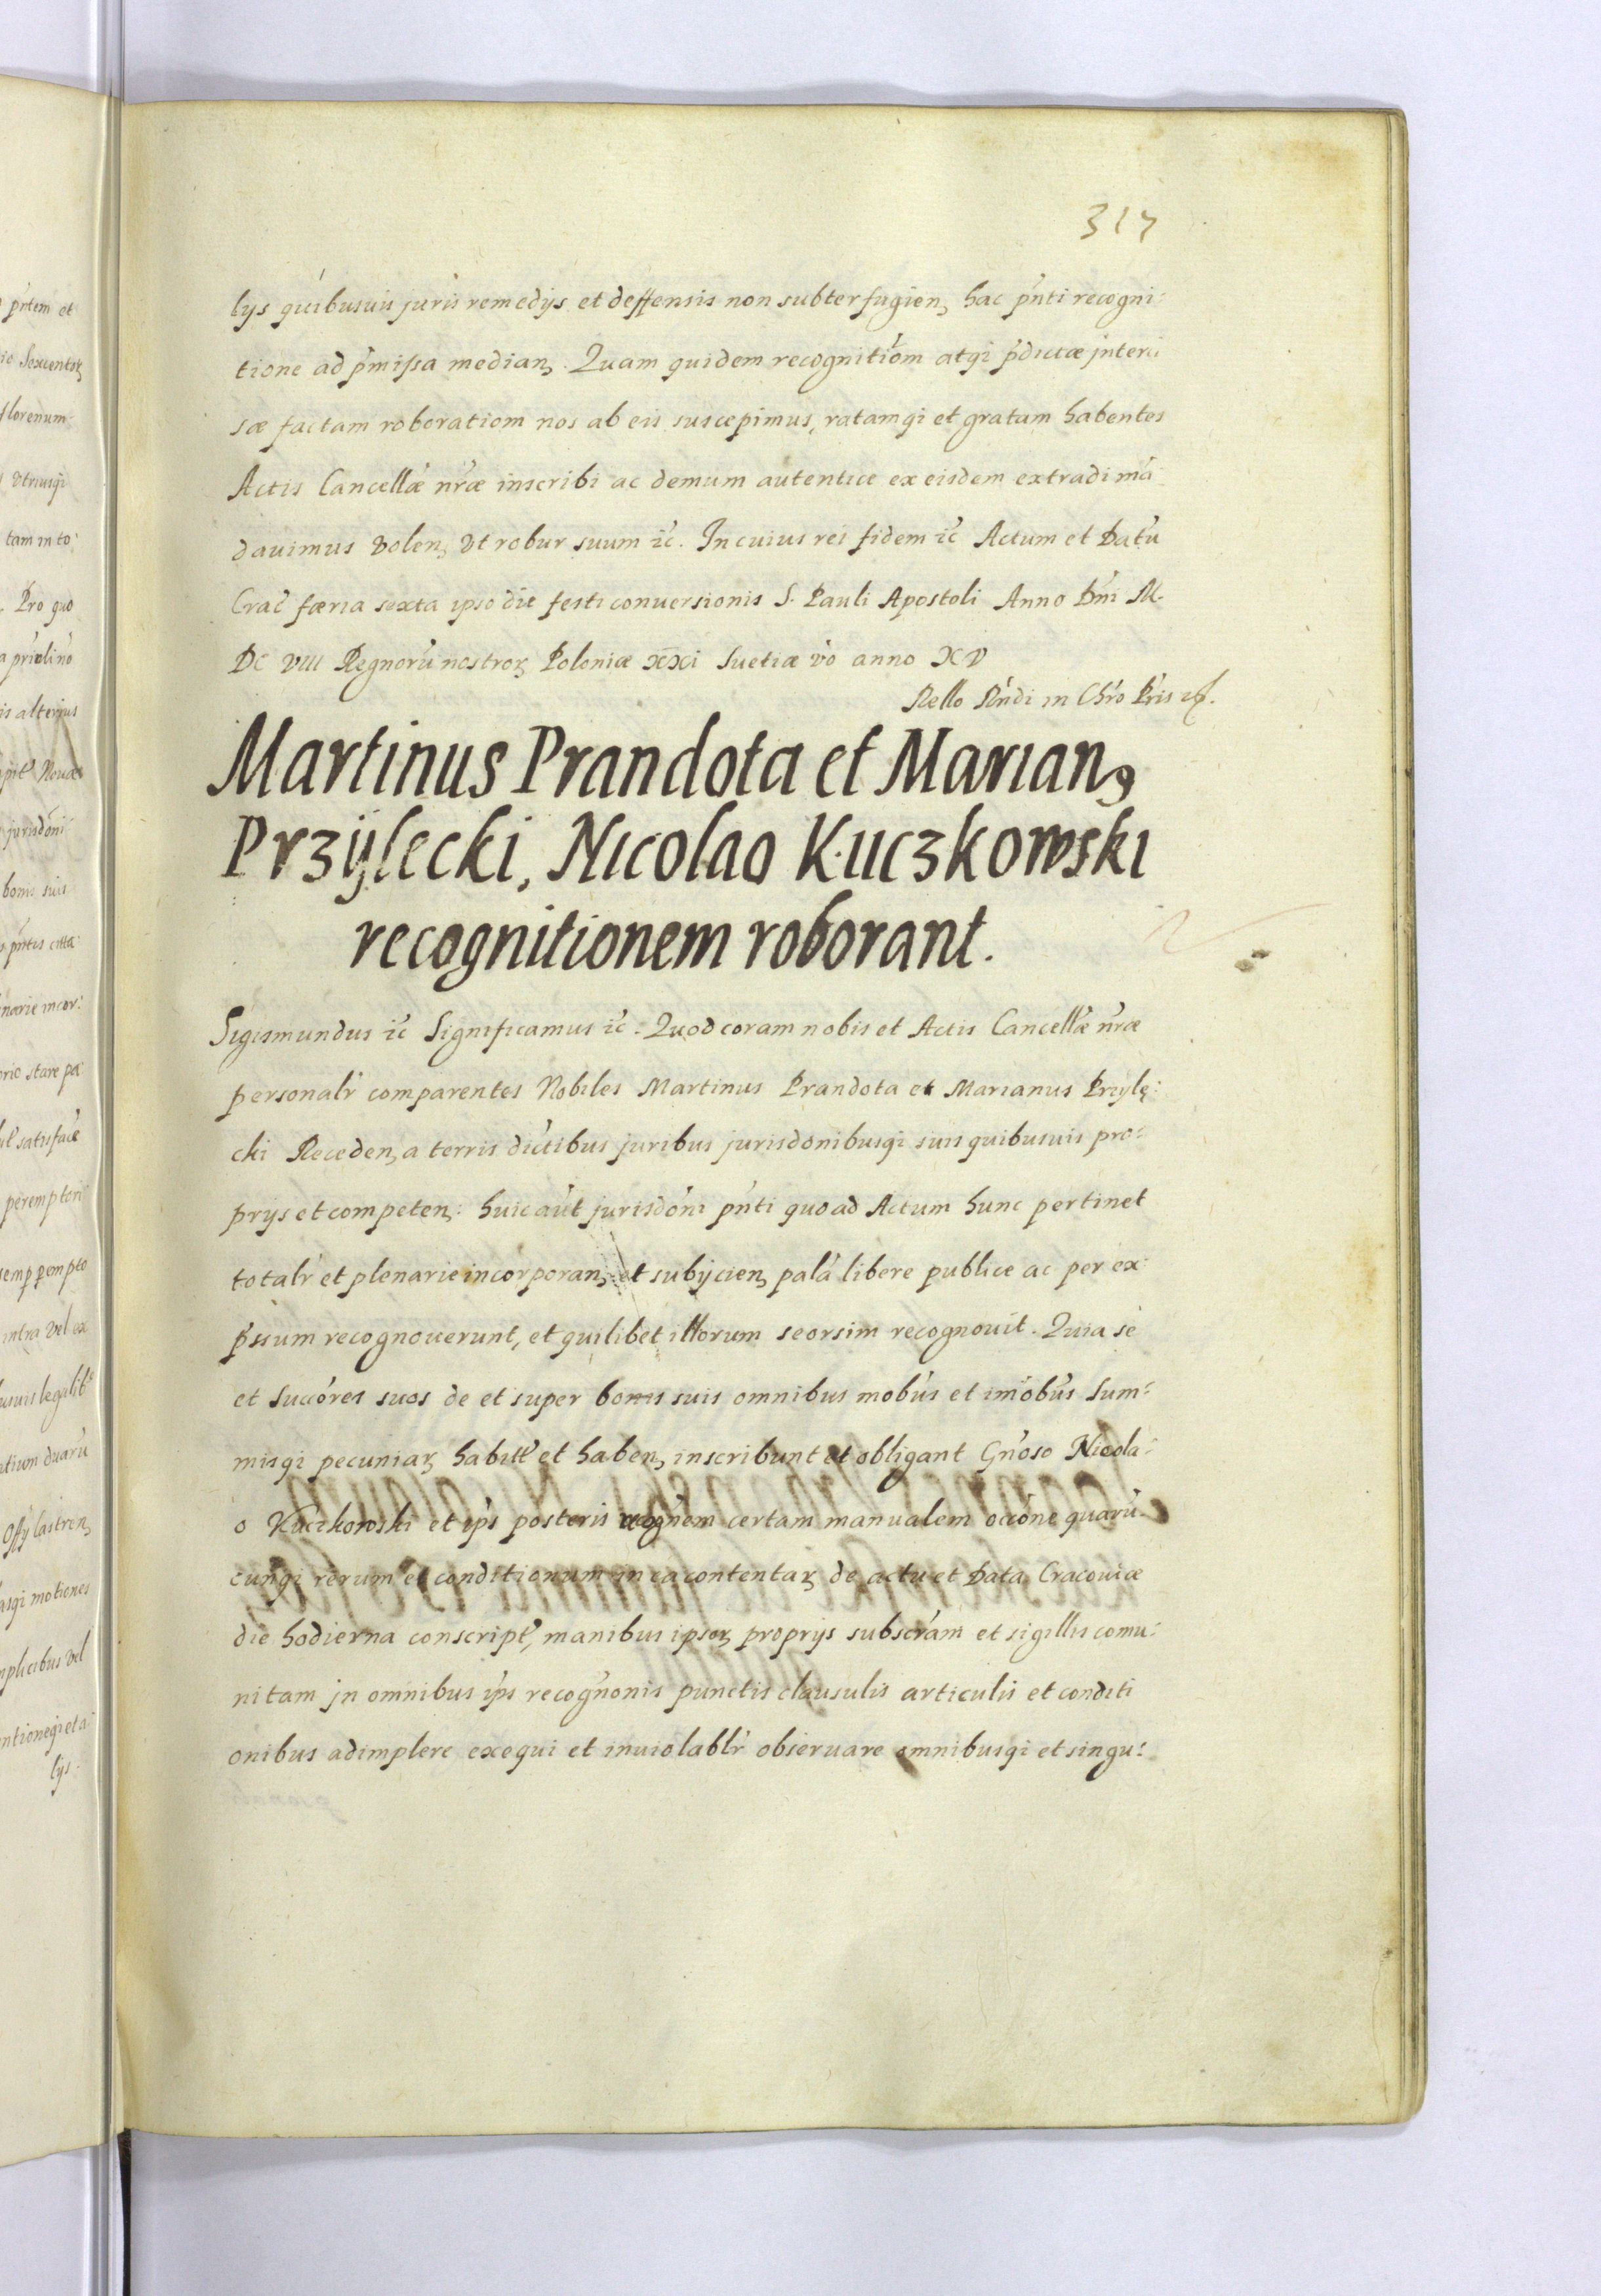 317
lijs quibusuis juris remedijs et deffensis non subterfugien, hac pñti recogni:
tione ad pmissa median, Quam quidem recognitiom atqi pdictæ interci
sæ factam roboratiom nos ab eis suscepimus, ratamqi et gratam habentes
Actis Cancellæ nræ inscribi ac demum autentice ex eisdem extradi mã
dauimus volen, vt robur suum ic̃. In cuius rei fidem ic̃ Actum et Datũ
Crac̃ færia sexta ipso die festi conuersionis S. Pauli Apostoli Anno Dñi M.
DC VIII Regnorũ nostroꝝ Poloniæ xxi Suetiæ v̊o anno XV
Rello Rñdi in Chr̃o Pr̃is
Martinus Prandota et Marianꝯ
Przÿlecki, Nicolao Kuczkowski
recognitionem roborant.
Sigismundus ic̃ Significamus ic̃. Quod coram nobis et Actis Cancellæ nræ
personalr̃ comparentes Nobiles Martinus Prandota et Marianus Przylę:
cki Receden, a terris dictibus juribus jurisdonibusqi suis quibusuis pro:
prijs et competen, huic aũt jurisdõni pñti quo ad Actum hunc pertinet
totalr̃ et plenarie incorporan, et subijcien, palã libere publice ac per ex:
pssum recognouerunt, et quilibet illorum seorsim recognouit. Quia se
et succõres suos de et super bonis suis omnibus mobũs et imobũs Sum:
misqi pecuniaꝝ habitꝭ et haben, inscribunt et obligant Gñoso Nicola:
o Kuczkowski et ips posteris recogñem certam manualem occõne quarũ:
cunqi rerum et conditionum in ea contentaꝝ de actu et Data Cracouiæ
die hodierna conscriptꝭ, manibus ipsoꝝ proprijs subscrãm et sigillis comu:
nitam jn omnibus ips recogñonis punctis clausulis articulis et conditi
onibus adimplere exequi et inuiolablr̃ obseruare omnibusqi et singu: